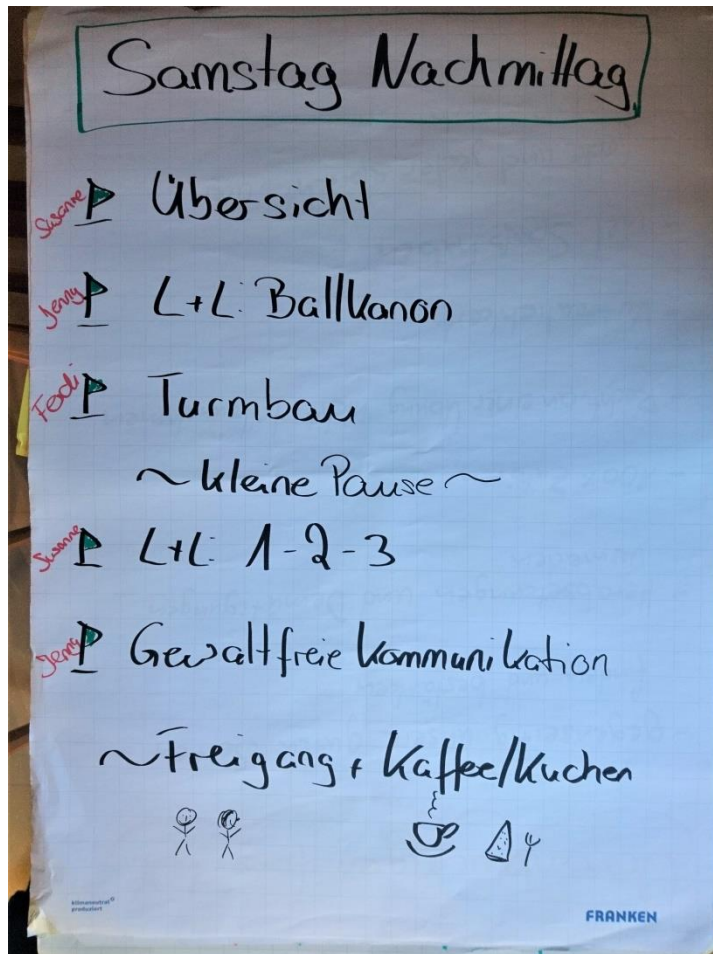 Samstag Nachmittag
Susanne Übersicht
Jenny L+L: Ballkanon
Fedi Turmbau
~ kleine Pause ~
Susanne L+L: 1-2-3
Jenny Gewaltfreie Kommunikation
~Freigang + Kaffee/Kuchen
klimaneutral
produziert
FRANKEN